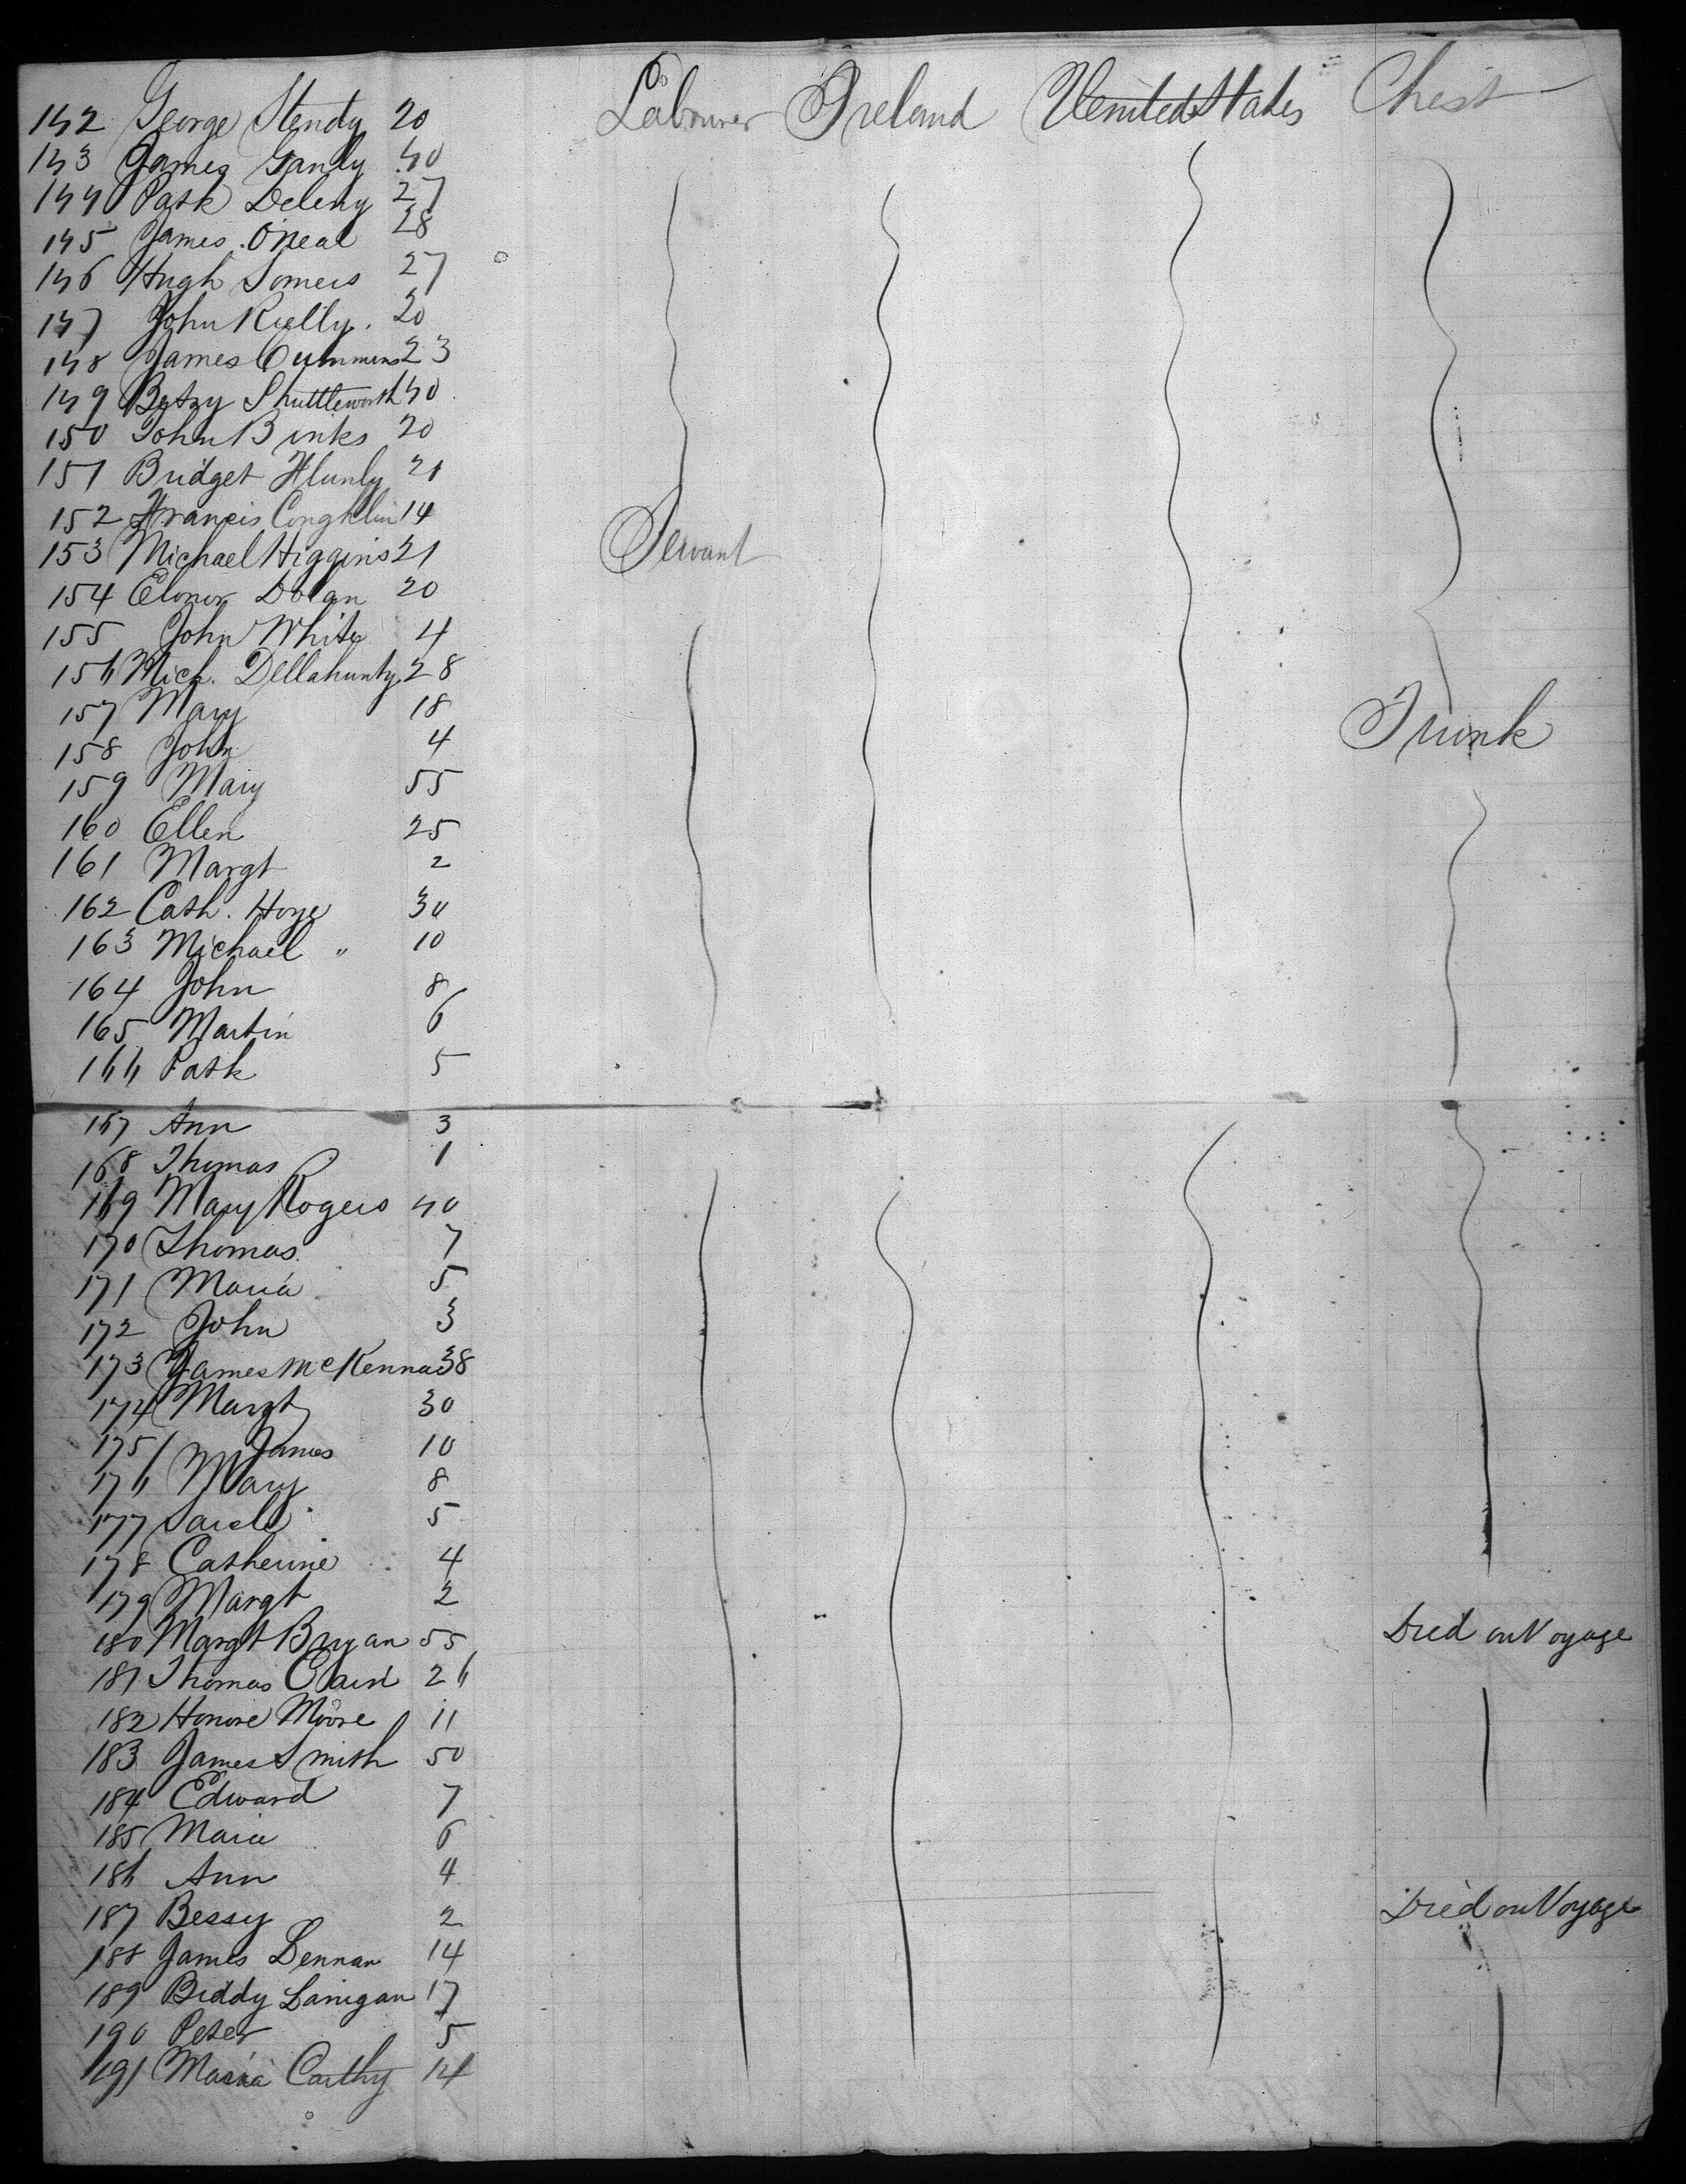 142 George Stendy 20 Labourer Ireland United States Chest
143 James Ganly 40
144 Patk Deleny 27
145 James O'Neal 28
146 Hugh Somers 27
147 John Rielly. 20
148 James Cummins 23
149 Betsy Shuttleworth 40
150 John Binks 20
151 Bridget Hunly 21
152 Francis Congklin 14
153 Michael Higgins 21 Servant
154 Elonor Dolan 20
155 John White 4
156 Mich. Dellahunty 28
157 Mary 18 Trunk
158 John 4
159 Mary 55
160 Ellen 25
161 Margt 2
162 Cath. Hoye 30
163 Michael " 10
164 John 8
165 Martin 6
166 Patk 5
167 Ann 3
168 Thomas 1
169 Mary Rogers 40
170 Thomas 7
171 Maria 5
172 John 3
173 James McKenna 38
174 Margt 30
175 James 10
176 Mary 8
177 5
178 Catherine 4
179 Margt 2
180 Margt Bryan 55 Died on Voyage
181 Thomas 26
182 Honore Moore 11
183 James Smith 50
184 Edward 7
185 Maria 6
186 Ann 4
187 Bessy 2 Died on Voyage
188 James Lennan 14
189 Biddy Lanigan 17
190 Peter 5
191 Maria Carthy 14